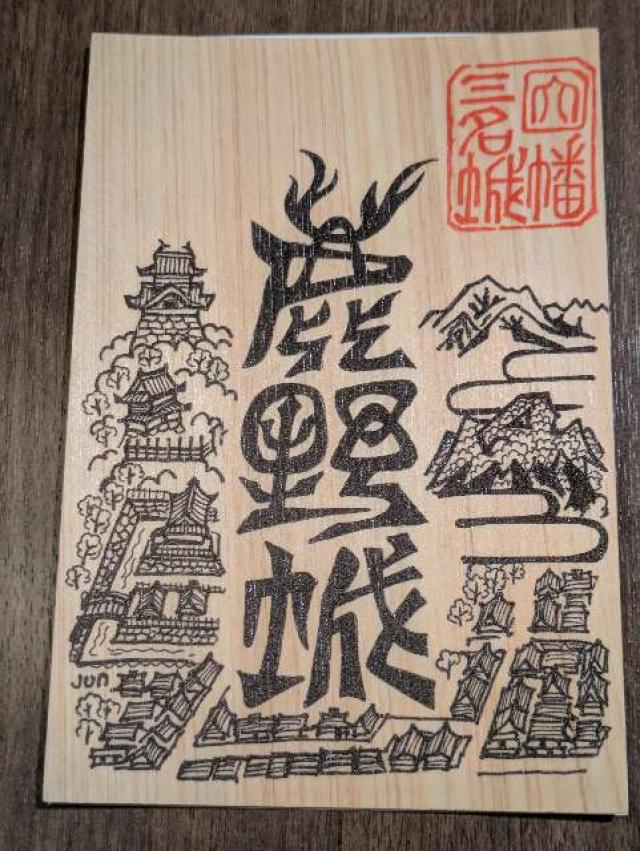 因幡
三名城
鹿野城
Jun